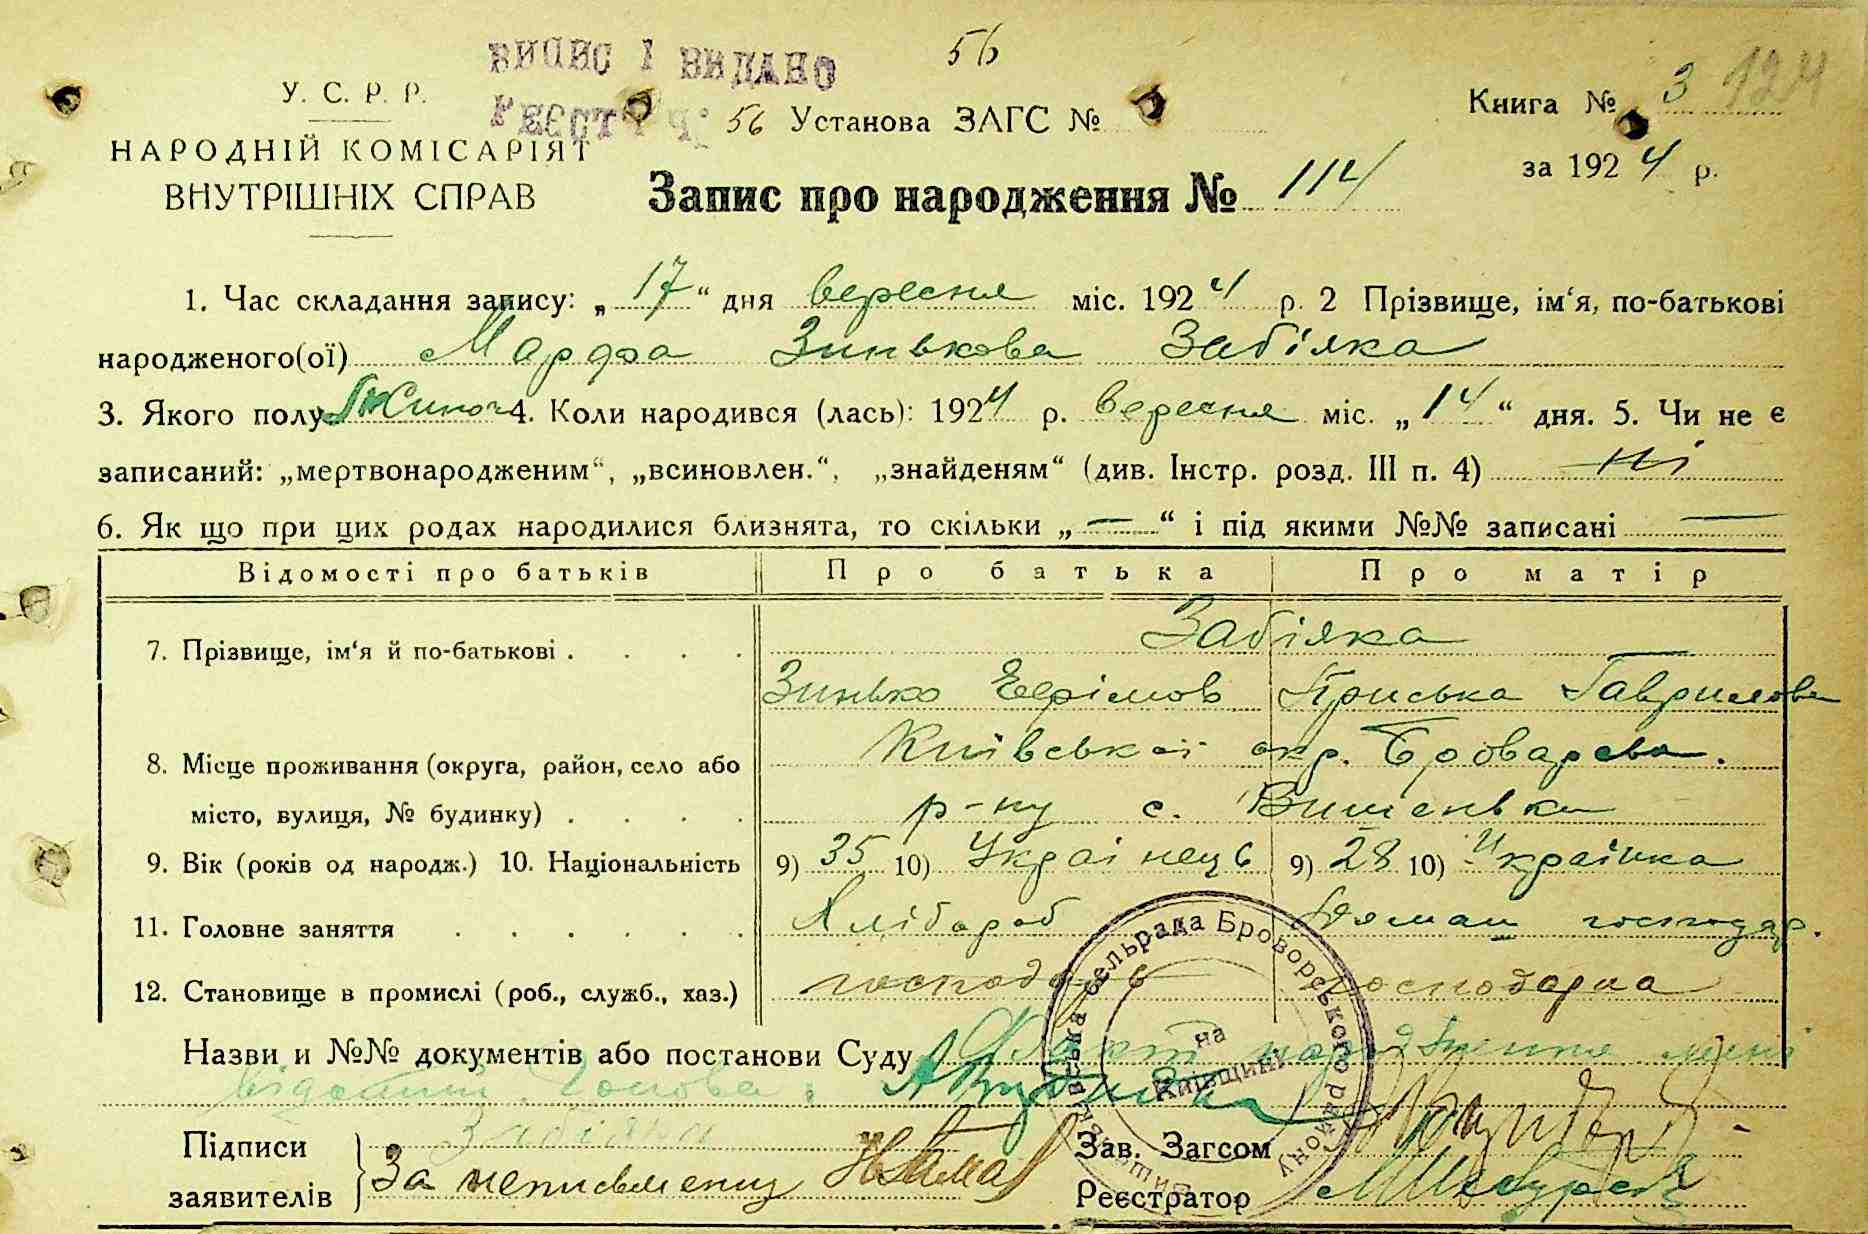 56
ВИПИС І ВИДАНО
РЕЄСТР Ч. 56
У. С. Р. Р.
НАРОДНІЙ КОМІСАРІЯТ
ВНУТРІШНІХ СПРАВ
Установа ЗАГС №
Книга № 3 124
за 1924 р.
Запис про народження № 114
1. Час складання запису: „17“ дня вересня міс. 1924 р. 2 Прізвище, ім‘я, по-батькові
народженого(ої) Марфа Зинькова Забіяка
3. Якого полу Жиноч 4. Коли народився (лась): 1924 р. вересня міс. „14“ дня. 5. Чи не є
записаний: „мертвонародженим“, „всиновлен.“, „знайденям“ (див. Інстр. розд. III п. 4) ні
6. Як що при цих родах народилися близнята, то скільки „—“ і під якими №№ записані —
Відомості про батьків Про батька Про матір
7. Прізвище, ім‘я й по-батькові Забіяка
Зинько Євфімов Приська Гаврилова
8. Місце проживання (округа, район, село або Київської окр. Броварськ.
місто, вулиця, № будинку) р-ну с. Вишеньки
9. Вік (років од народж.) 10. Національність 9) 35 10) Українець 9) 28 10) Українка
11. Головне заняття Хлібороб Домаш господар.
12. Становище в промислі (роб., служб., хаз.) господарь господарка
Назви и №№ документів або постанови Суду Факт народження мені
відомий Голова:
Підписи Забіяка
заявителів За неписьменну
Зав. Загсом
Реєстратор
Вишеньківська сельрада Броворського району
на Київщині